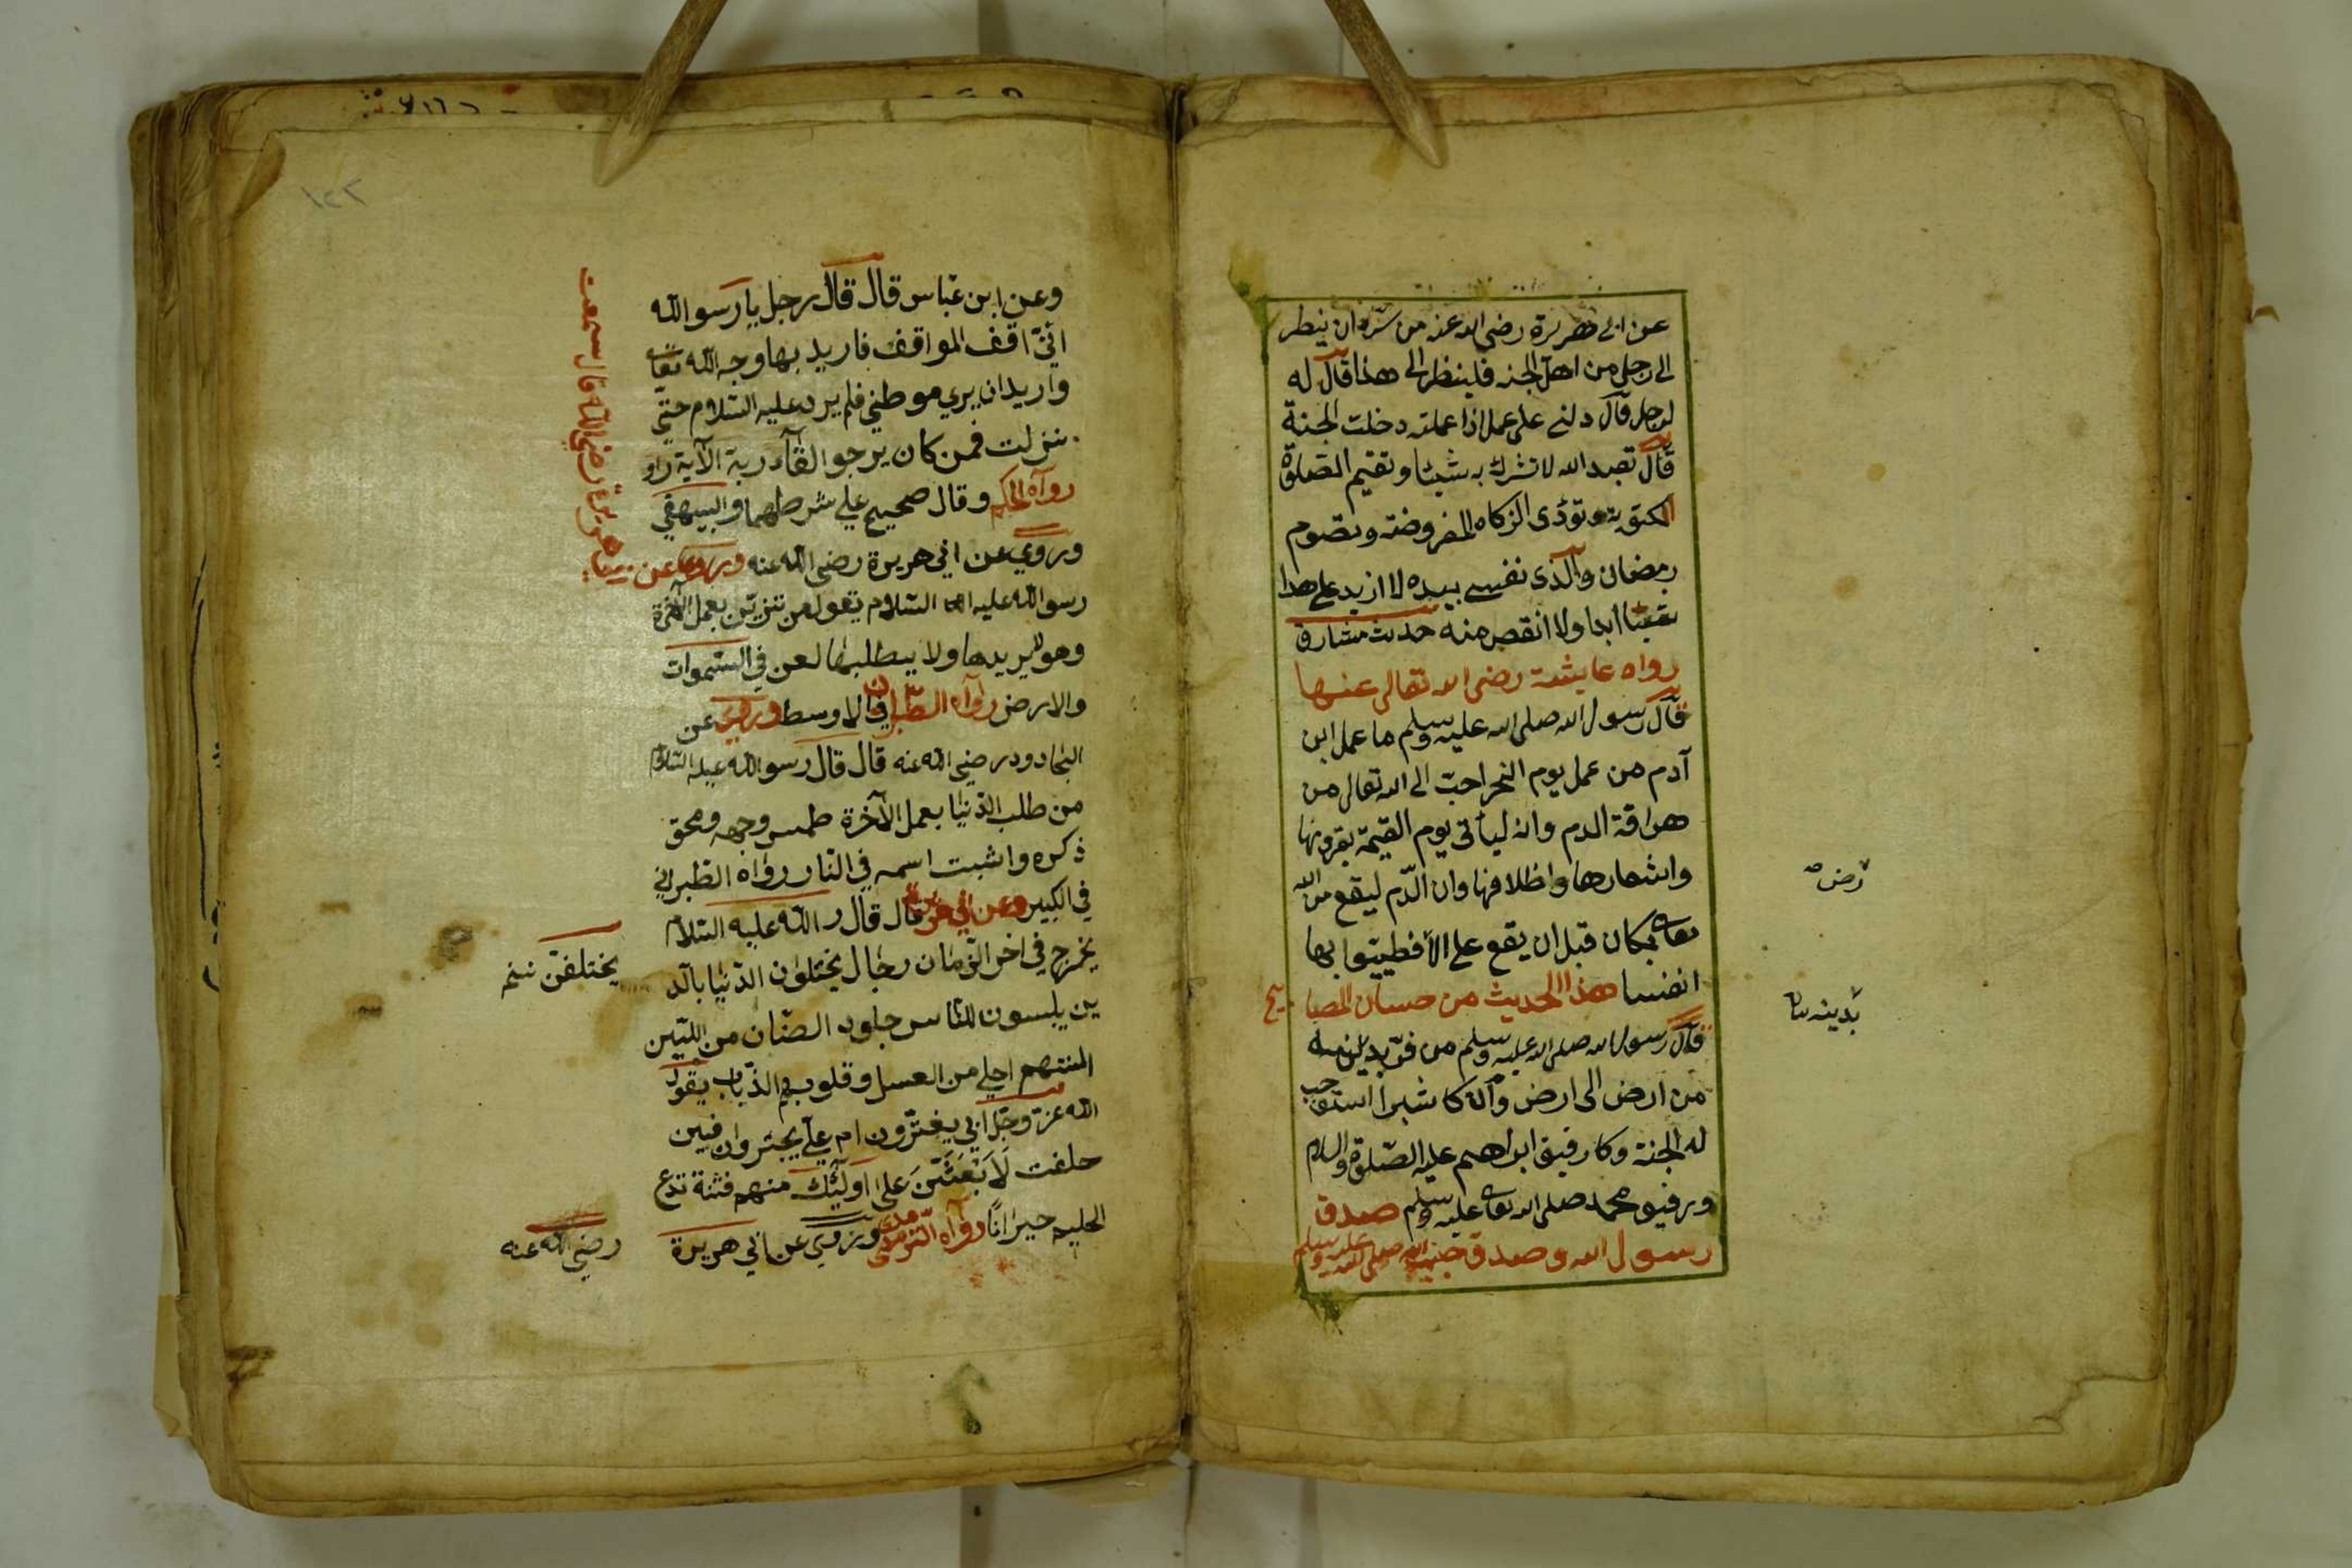 عن ابى هريرة رضى الله عنه من سره ان ينظر
الى رجل من اهل الجنه فلينظر الى هذا قال له
لرجل قال دلنى على عمل اذا عملته دخلت الجنة
قال تعبد الله لا تشرك به شيئا وتقيم الصلوة
المكتوبة وتؤدى الزكاه المفروضة وتصوم
رمضان والذى نفسى بيده لا ازيد على هذا
شيئا ابدا ولا انقص منه حديث مشارق
رواه عايشة رضى الله تعالى عنها
قال رسول الله صلى الله عليه وسلم ما عمل ابن
آدم من عمل يوم النحر احب الى الله تعالى من
هراقة الدم وانه ليأتى يوم القيمة بقرونها
واشعارها واظلافها وان الدم ليقع من الله
تعالى بمكان قبل ان يقع على الأ فطيبوا بها
انفسا هذا الحديث من حسان المصابيح
قال رسول الله صلى الله عليه وسلم من فر بدينه
من ارض الى ارض وان كا شبرا استوجب
له الجنة وكا رفيق ابراهيم عليه الصلوة والسلام
ورفيق محمد صلى الله تعالى عليه وسلم صدق
رسول الله وصدق حبيب الله صلى الله عليه وسلم
رض
بدينه
١٢٣
وعن ابن عباس قال قال رجل يا رسو الله
انى اقف المواقف فاريد بها وجه الله تعا
واريد ان يرى موطنى فلم يرد عليه السلام حتى
نزلت فمن كان يرجو القآء ربه الآية
رواه الحكم وقال صحيح على شرطهما والبيهقى
وروى عن ابى هريرة رضى الله عنه وروى عن
ابى هريرة رضى الله قال سمعت
رسو الله عليه السلام يقول من تزين بعمل الآخرة
وهو لا يريدها ولا يطلبها لعن فى السموات
والارض رواه الطبرانى فى الاوسط وروى عن
الجادود رضى الله عنه قال قال رسو الله عليه السلام
من طلب الدنيا بعمل الآخرة طمس وجهه ومحق
ذكره واثبت اسمه فى النار رواه الطبرانى
فى الكبير وعن ابى هريرة قال قال ر الله عليه السلام
يخرج فى اخر الزمان رجال يختلون الدنيا بالد
ين يلبسون للناس جلود الضان من اللين
السنتهم احلى من العسل وقلوبهم الذياب يقول
الله عز وجل ابى يغترون ام على يجترون فبين
حلفت لابعثن على اولئك منهم فتنة تدع
الحليم حيرانا رواه الترمدى وروى عن ابى هريرة
رضى الله عنه